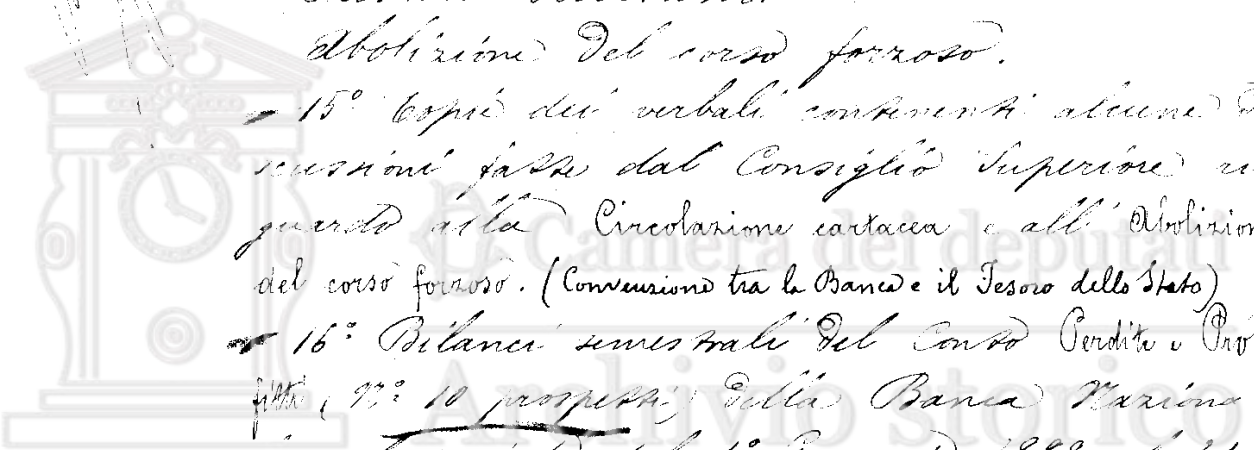 Abolizione del corso forzoso.
15° Copie dei verbali contenenti alcune di
scussioni fatte dal Consiglio Superiore ri
guardo alla Circolazione cartacea e all' Abolizion
del corso forzoso. (Convenzione tra la Banca e il Tesoro dello Stato)
16° Bilanci semestrali del Conto Perdite e Pro
fitti, (N° 10 prospetti) della Banca Naziona
Camera dei deputati
Archivio storico